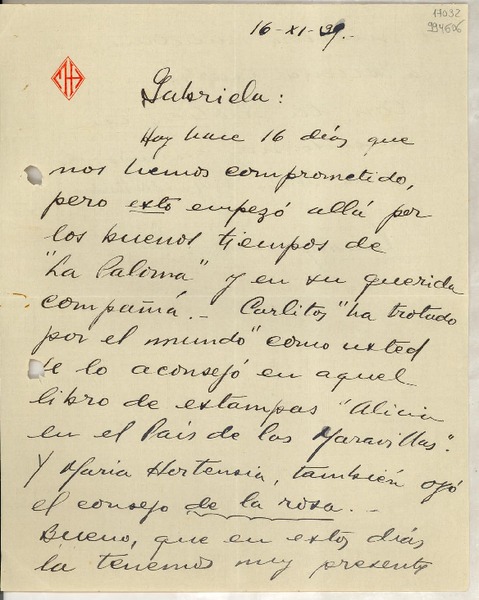 17032
994606
16-XI-39.-
MHA
Gabriela:
Hoy hace 16 días que
nos hemos comprometido,
pero esto empezó allá por
los buenos tiempos de
"La Paloma" y en su querida
compañá.- Carlitos "ha trotado
por el mundo" como usted
se lo aconsejó en aquel
libro de estampas "Alicia
en el País de las Maravillas".
Y María Hortensia, también oyó
el consejo de la rosa.-
Bueno, que en estos días
la tenemos muy presente